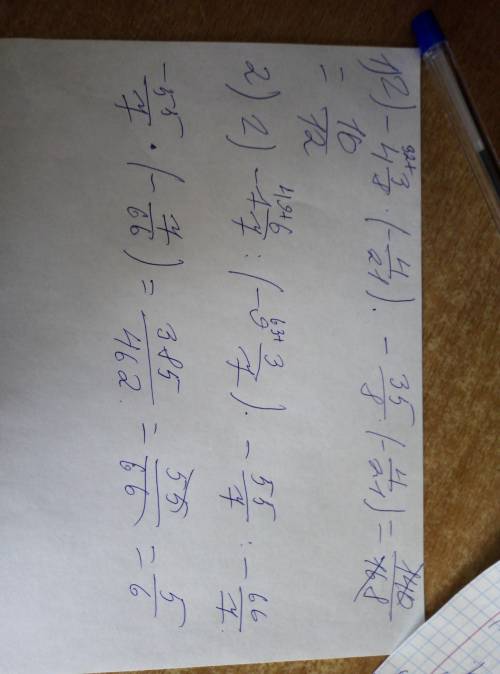 1) 2) - 4 3/8 · (- 4/21). - 35/8 · (- 4/21) = 140/168
= 10/12
2) 2) - 7 6/7 : (- 9 3/7). - 55/7 : - 66/7
- 55/7 · (- 7/66) = 385/462 = 55/66 = 5/6